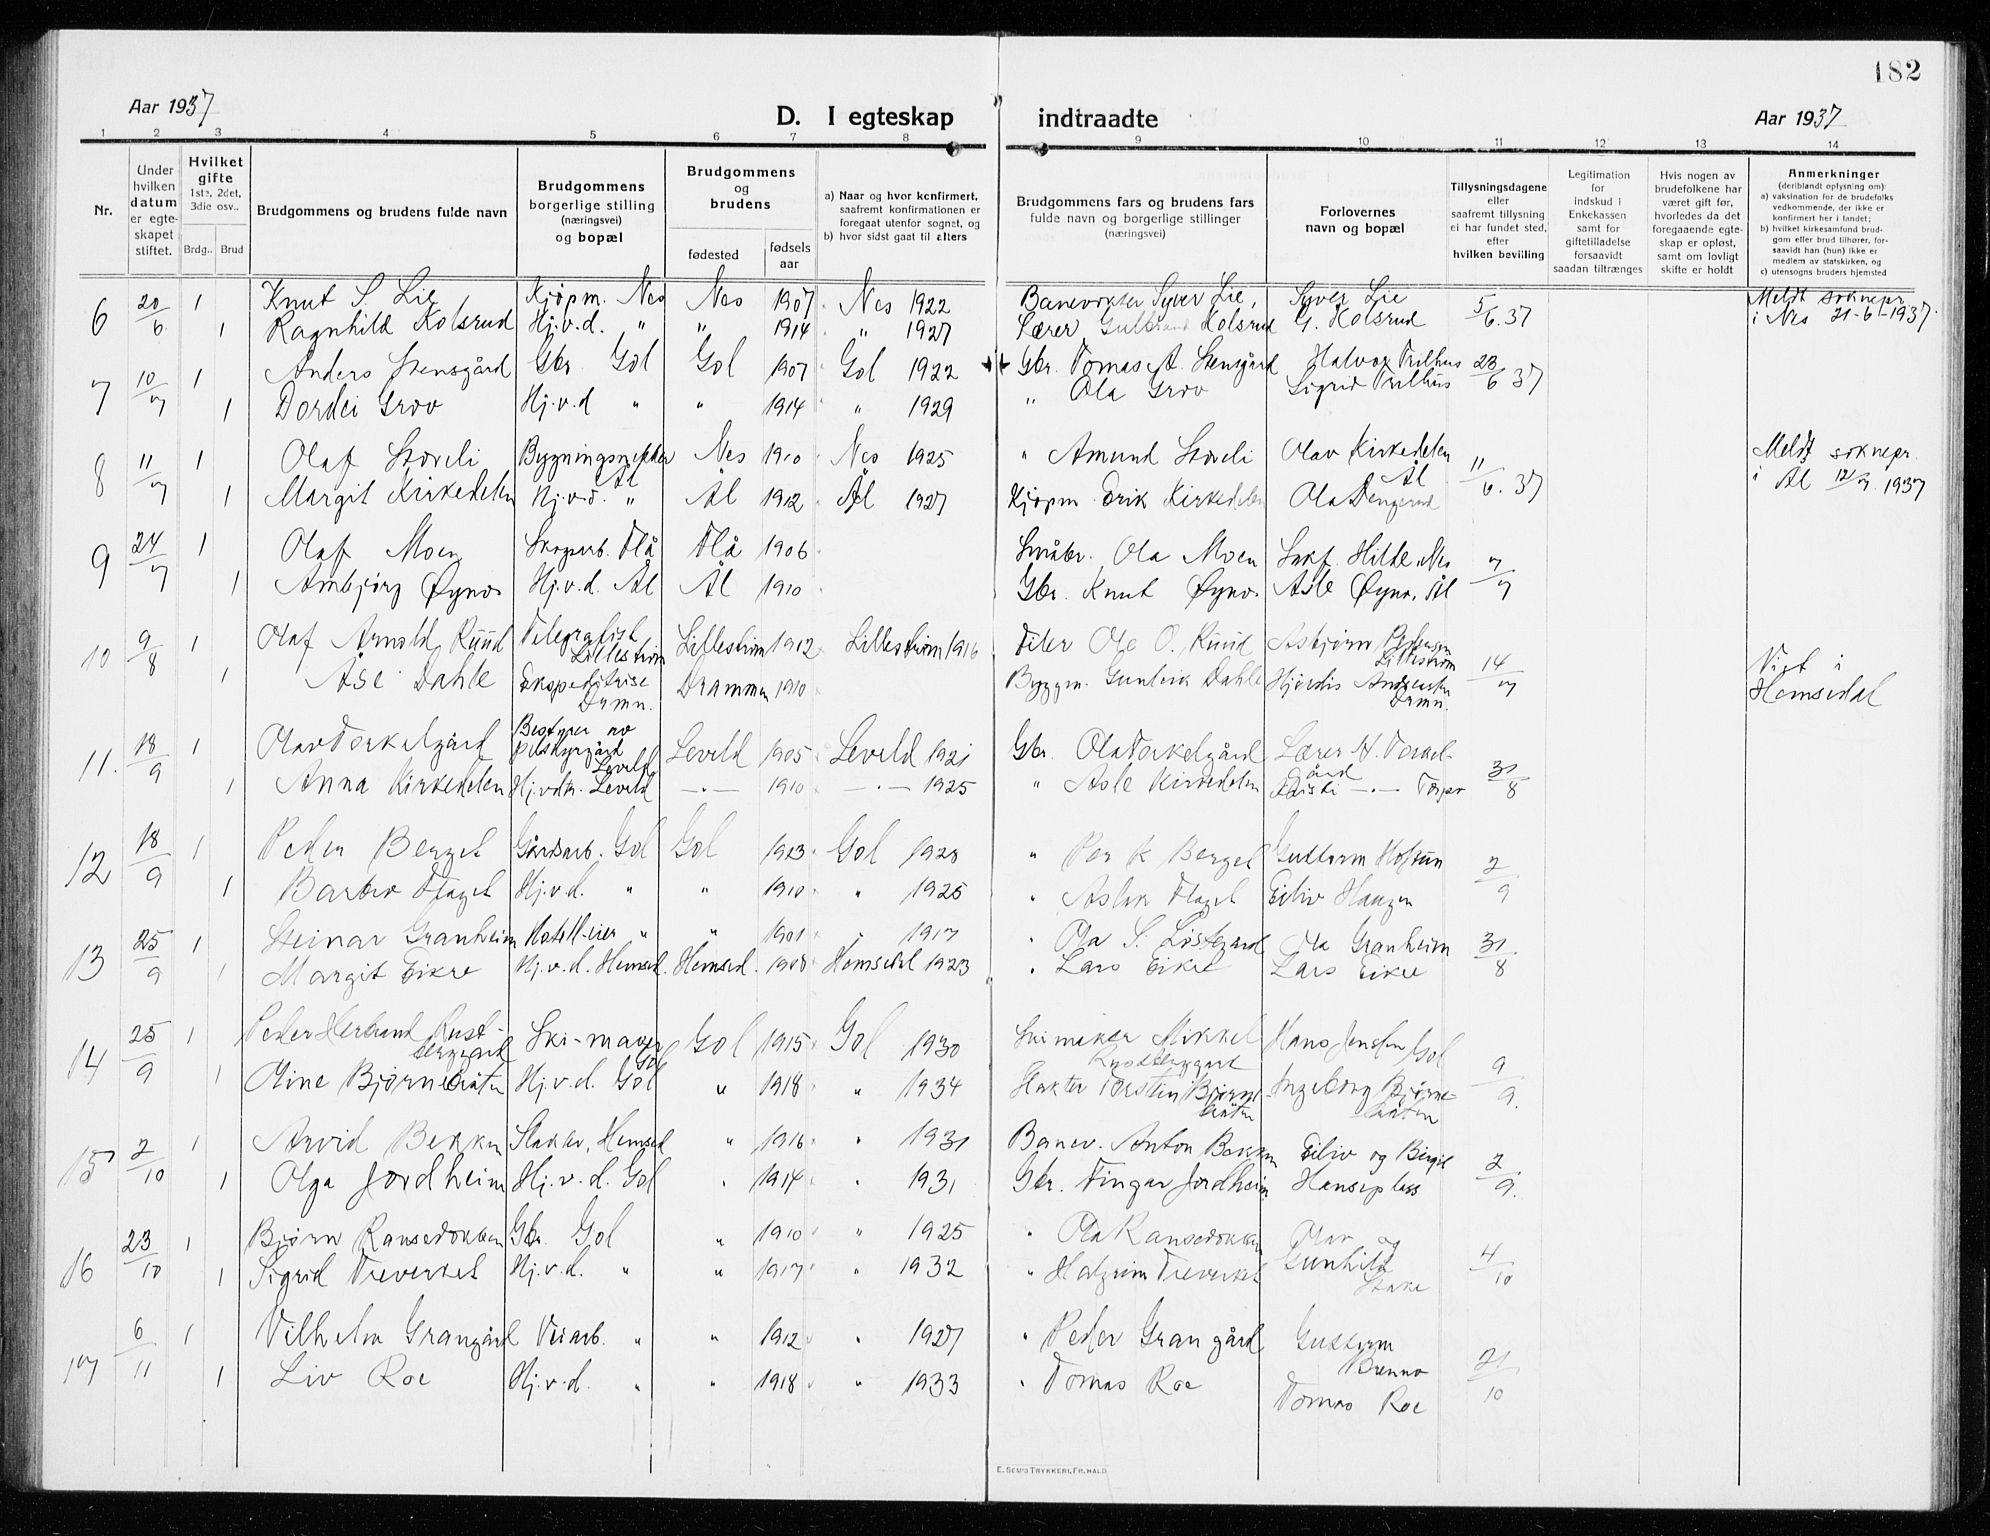 182
Aar 1937 D. I egteskap indtraadte Aar 1937
1 2 3 4 5 6 7 8 9 10 11 12 13 14
Nr.
Under hvilken datum er egteskapet stiftet.
Hvilket gifte 1ste, 2det, 3die osv..
Brdg.. Brud
Brudgommens og brudens fulde navn
Brudgommens borgerlige stilling (næringsvei) og bopæl
Brudgommens og brudens
fødested fødselsaar
a) Naar og hvor konfirmert, saafremt konfirmationen er foregaat utenfor sognet, og
b) hvor sidst gaat til alters
Brudgommens fars og brudens fars fulde navn og borgerlige stillinger (næringsvei)
Forlovernes navn og bopæl
Tillysningsdagene eller saafremt tillysning ei har fundet sted, efter hvilken bevilling
Legitimation for indskud i Enkekassen samt for giftetilladelse forsaavidt saadan tiltrænges
Hvis nogen av brudefolkene har været gift før, hvorledes da det foregaaende egteskap er opløst, samt om lovligt skifte er holdt
Anmerkninger (deriblandt oplysning om): a) vaksination for de brudefolks vedkommende, der ikke er konfirmert her i landet; b) hvilket kirkesamfund brudgom eller brud tilhører, forsaavidt han (hun) ikke er medlem av statskirken, og c) utensogns bruders hjemsted
6 20/6 1 Knut S. Lie Kjøpm. Nes Nes 1907 Nes 1922 Banevokter Syver Lie, Syver Lie 5/6.37 Meldt soknepr. i Nes 21-6-1937.
1 Ragnhild Kolsrud Hj.v.d. " " 1914 " 1927 Lærer Gulbrand Kolsrud G. Kolsrud
7 10/7 1 Anders Stensgård Gbr. Gol Gol 1907 Gol 1922 Gbr. Tomas A. Stensgård Halvor Trilhus 23/6 37
1 Dordei Grov Hj.v.d " " 1914 " 1929 " Ola Grov Sigrid Trilhus
8 11/7 1 Olaf Storeli Bygningsnekker Ål Nes 1910 Nes 1925 " Amund Storeli Olav Kirkedelen Ål 11/6.37 Meldt soknepr. i Ål 12/7 1937
1 Margit Kirkedelen Hj.v.d. " Ål 1912 Ål 1927 Kjøpm. Erik Kirkedelen Ola
9 24/7 1 Olaf Moen Skogsarb. Flå Flå 1906 Småbr. Ola Moen Hilde, Nes 7/7
1 Ambjørg Øyno Hj.v.d. Ål Ål 1910 Gbr. Knut Øyno Asle Øyno, Ål
10 9/8 1 Olaf Arnold Ruud Telegrafist Lillestrøm Lillestrøm 1912 Lillestrøm 1916 Ole O. Ruud Asbjørn Pedersen Lillestrøm 14/7 Viet i Hemsedal
1 Åse Dahle Ekspeditrise Drmn. Drammen 1910 Byggm. Gunleik Dahle Hjørdis Andersen Drmn.
11. 18/9 1 Olav Torkelgård Bestyrer av Leveld Leveld 1905 Leveld 1921 Gbr. Ola Torkelgård Lærer H. Torkelgård 31/8
1 Anna Kirkedelen Hj.vdtr. Leveld —·— 1910 —·— 1925 " Asle Kirkedelen —·— Torpo
12 18/9 1 Peder Berget Gårdsarb. Gol Gol 1913 Gol 1928 " Per K Berget Guttorm Hofsrun 2/9
1 Barbro Flaget Hj.v.d. " " 1910 " 1925 " Aslak Flaget Eiliv Haugen
13 25/9 1 Steinar Granheim Hotell-eier " " 1901 " 1917 " Ola S. Løstegård Ola Granheim 31/8
1 Margit Eikre Hj.v.d. Hemsed. Hemsed. 1908 Hemsedal 1923 " Lars Eikre Lars Eikre
14 25/9 1 Peder Herbrand Rustberggard Ski-maker Gol Gol 1915 Gol 1930 Skimaker Mikkel Rustberggard Hans Jensen Gol 9/9.
1 Oline Bjørnebråten Hj.v.d. Gol " 1918 " 1934 Slakter Torstein Bjørnebråten Ingeborg Bjørnebråten
15 2/10 1 Arvid Bekken Slakter, Hemsed " 1916 " 1931 Banev. Anton Bekken Eiliv og Birgit 2/9.
1 Olga Jordheim Hj.v.d. Gol " 1914 " 1931 Gbr. Fingar Jordheim Hanseplass
16 23/10 1 Bjørn Ransedokken Gbr. Gol " 1910 " 1925 " Ola Ransedokken Olav og Gunhild Stake 4/10
1 Sigrid Treverket Hj.v.d. " " 1917 " 1932 " Halgrim Treverket
17 6/11 1 Vilhelm Grangård Veiarb. " " 1912 " 1927 " Peder Grangård Guttorm Brenno 21/10
1 Liv Roe Hj.v.d. " " 1918 " 1933 " Tomas Roe Tomas Roe
E. SEM'S TRYKKERI, FR.HALD